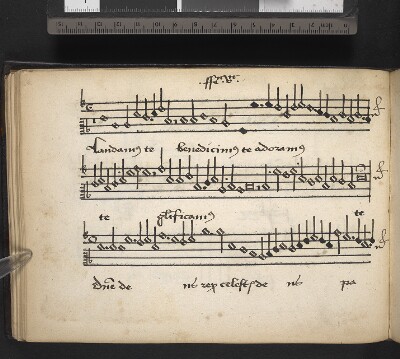 Laudamus te benedicimus te adoramus
te glificamus te
dne de us rex celestis de us pa